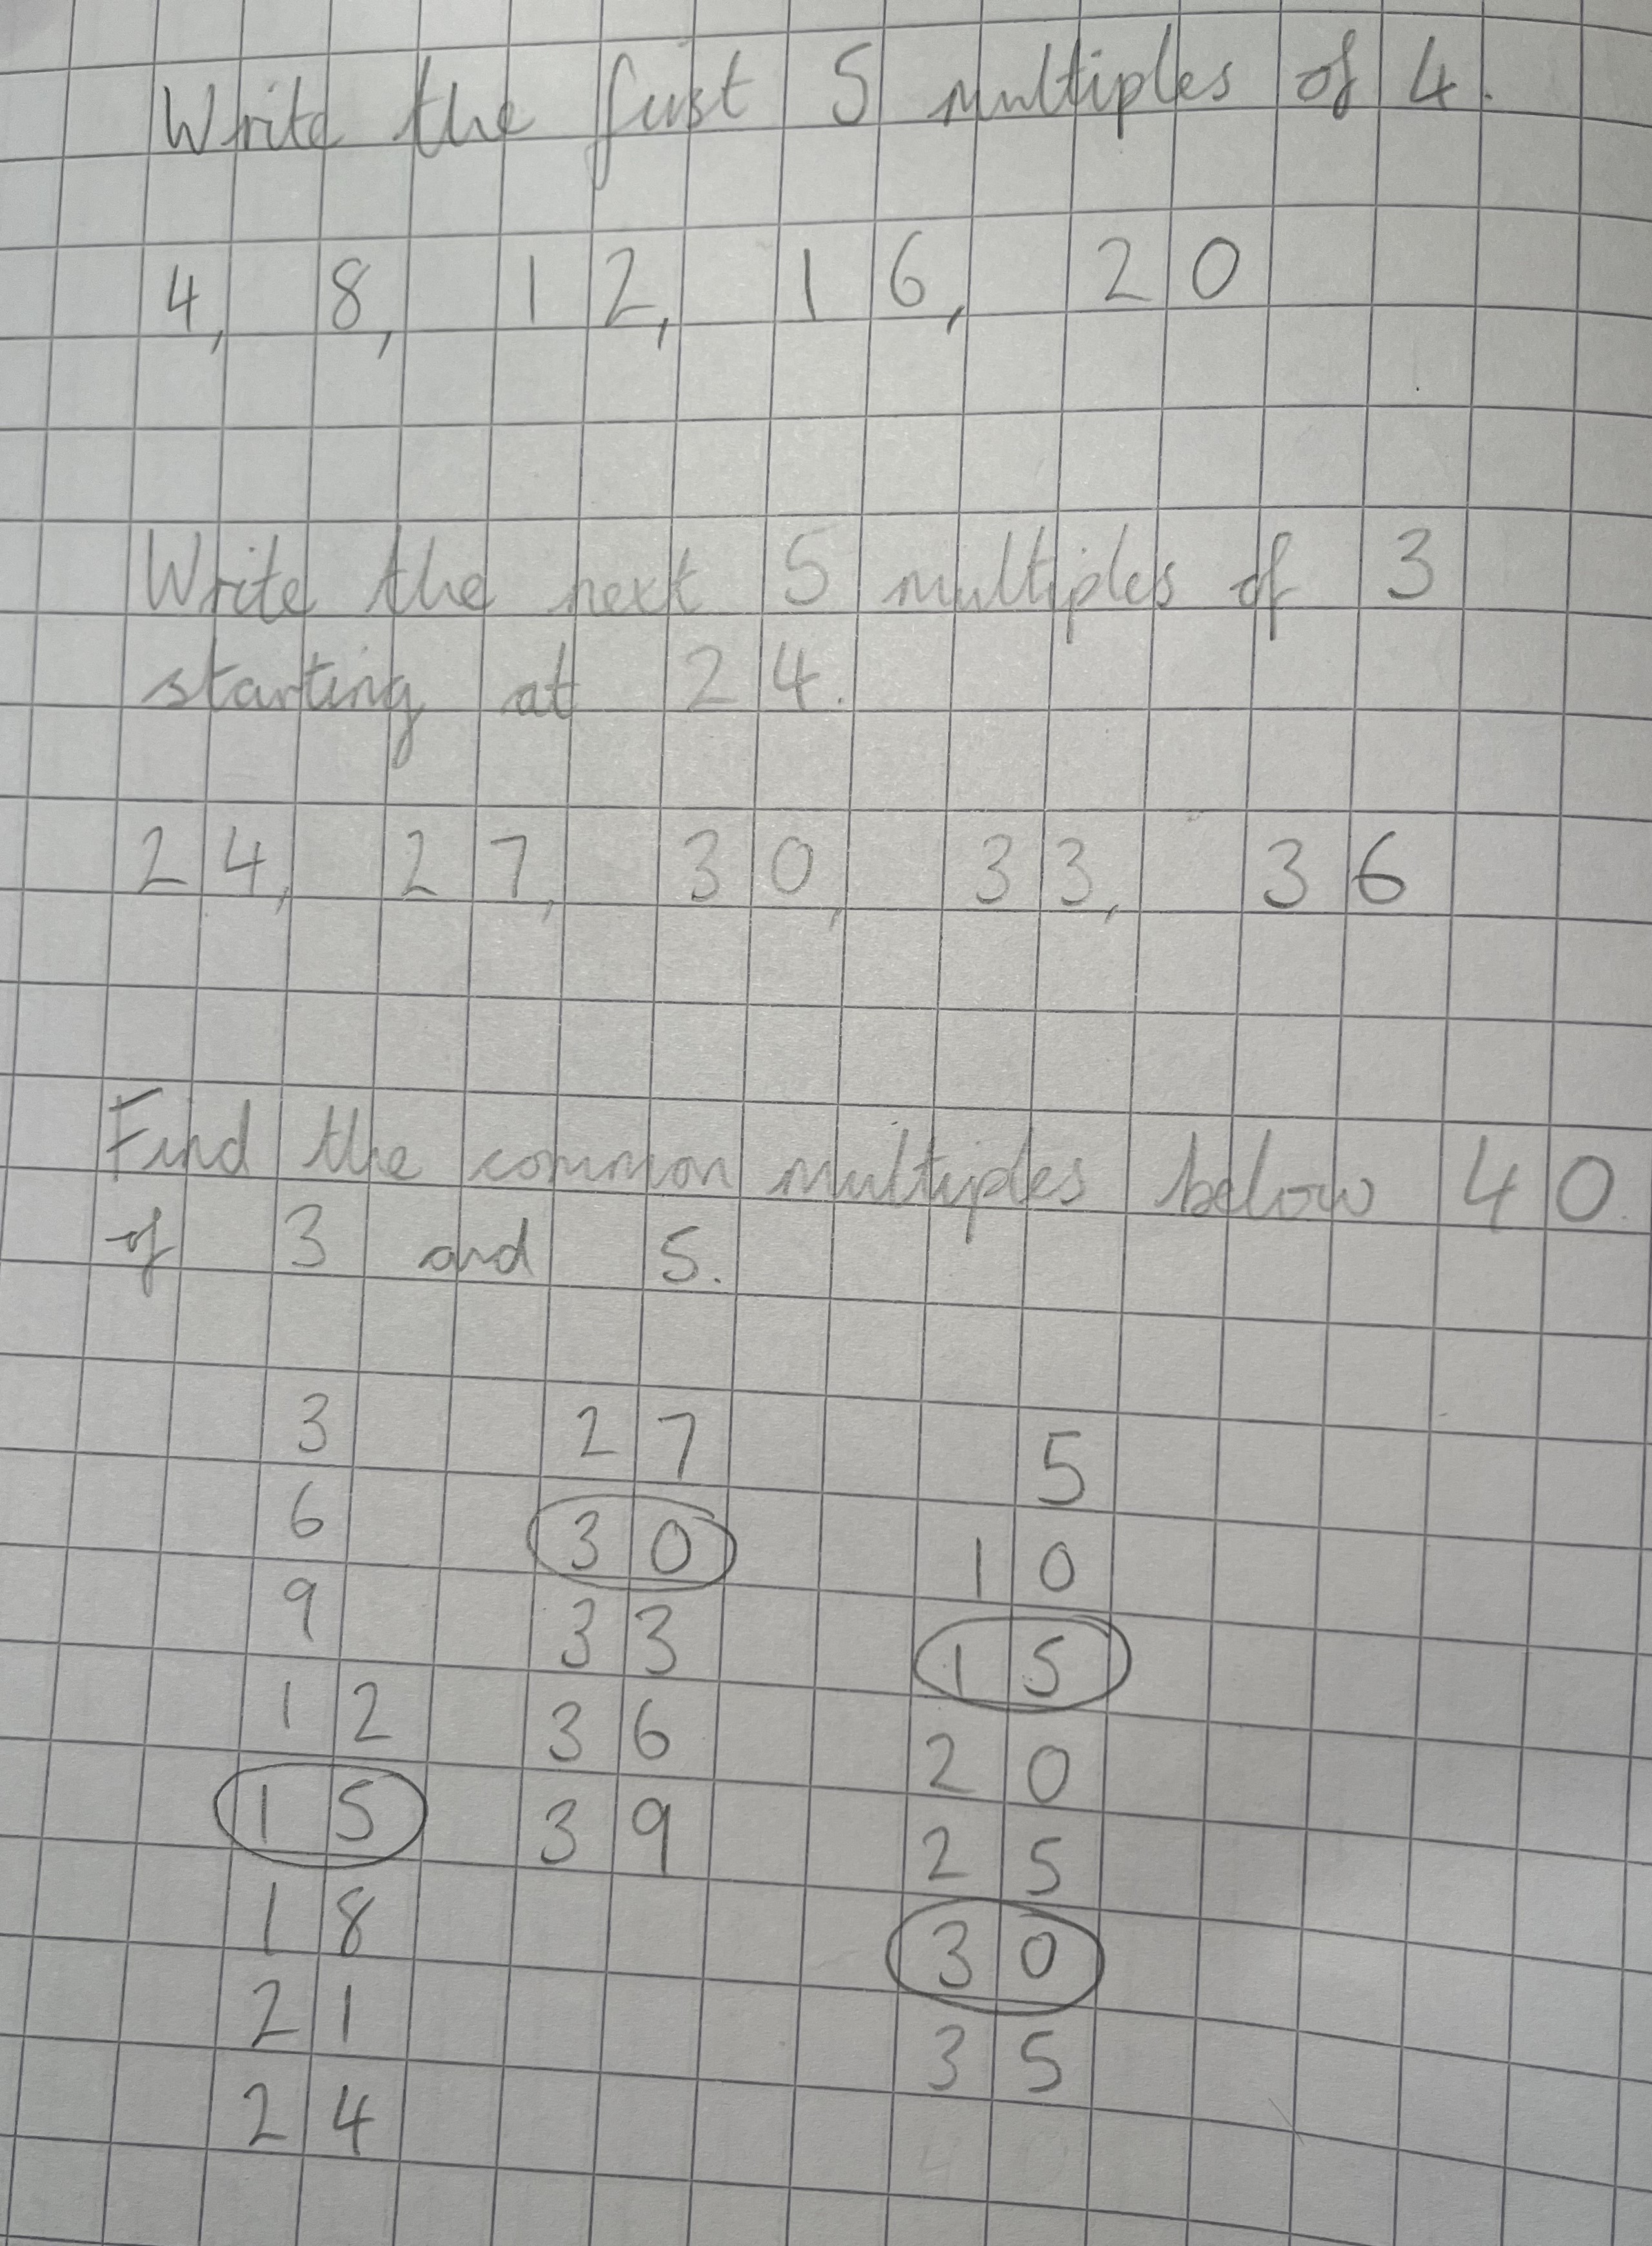 Write the first 5 multiples of 4.
4, 8, 12, 16, 20
Write the next 5 multiples of 3
starting at 24.
24, 27, 30, 33, 36
Find the common multiples below 40
of 3 and 5.
3
6
9
12
15
18
21
24
27
30
33
36
39
5
10
15
20
25
30
35